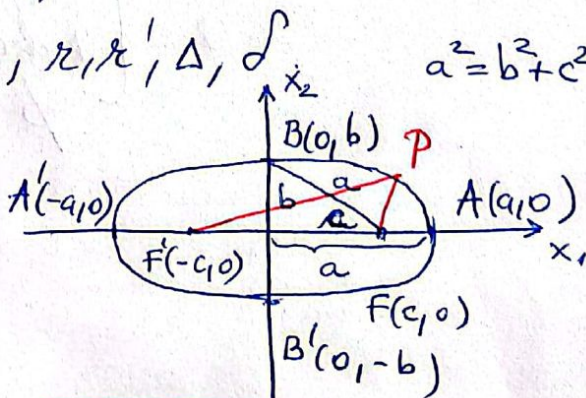 , r, r', Δ, δ
a² = b² + c²
x₂
B(0, b)
P
A'(-a, 0)
b
a
c
A(a, 0)
F'(-c, 0)
a
x₁
F(c, 0)
B'(0, -b)